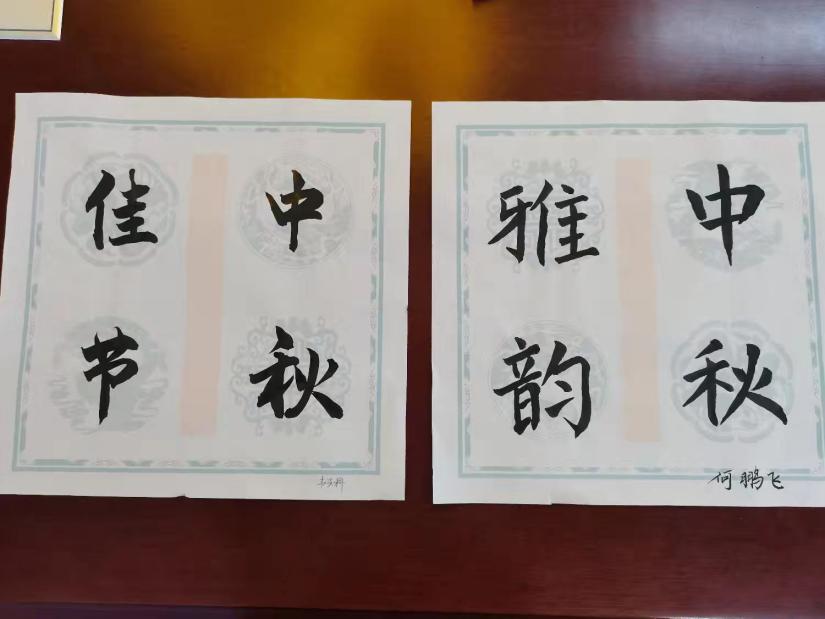 中秋
佳节
中秋
雅韵
何鹏飞